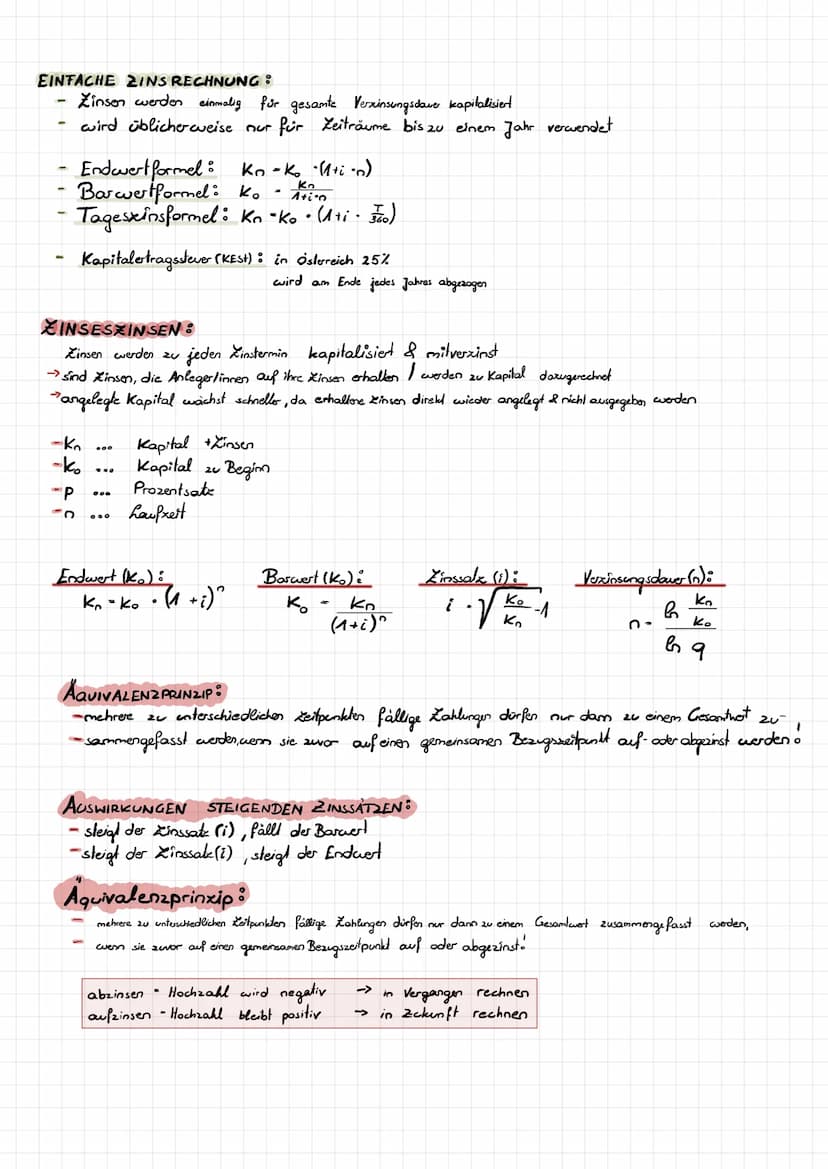 EINFACHE ZINSRECHNUNG:
- Zinsen werden einmalig für gesamte Verzinsungsdauer kapitalisiert
- wird üblicherweise nur für Zeiträume bis zu einem Jahr verwendet
- Endwertformel: Kn = K₀ · (1+i·n)
- Barwertformel: K₀ = Kn / 1+i·n
- Tageszinsformel: Kn = K₀ · (1+i · T/360)
- Kapitalertragssteuer (KESt): in Österreich 25%
wird am Ende jedes Jahres abgezogen
ZINSESZINSEN:
Zinsen werden zu jeden Zinstermin kapitalisiert & mitverzinst
→ sind Zinsen, die Anleger/innen auf ihre Zinsen erhalten / werden zu Kapital dazugerechnet
→ angelegte Kapital wächst schneller, da erhaltene Zinsen direkt wieder angelegt & nicht ausgegeben werden
- Kn ... Kapital + Zinsen
- K₀ ... Kapital zu Beginn
- p ... Prozentsatz
- n ... Laufzeit
Endwert (K₀): Barwert (K₀): Zinssatz (i): Verzinsungsdauer (n):
Kn = K₀ · (1+i)ⁿ K₀ = Kn / (1+i)ⁿ i = √(K₀ / Kn) -1 n = ln Kn/K₀ / ln q
ÄQUIVALENZPRINZIP:
- mehrere zu unterschiedlichen Zeitpunkten fällige Zahlungen dürfen nur dann zu einem Gesamtwert zu-
- sammengefasst werden, wenn sie zuvor auf einen gemeinsamen Bezugszeitpunkt auf- oder abgeinst werden!
AUSWIRKUNGEN STEIGENDEN ZINSSÄTZEN:
- steigt der Zinssatz (i), fällt der Barwert
- steigt der Zinssatz (i), steigt der Endwert
Äquivalenzprinzip:
- mehrere zu unterschiedlichen Zeitpunkten fällige Zahlungen dürfen nur dann zu einem Gesamtwert zusammengefasst werden,
- wenn sie zuvor auf einen gemeinsamen Bezugszeitpunkt auf oder abgezinst!
abzinsen - Hochzahl wird negativ → in Vergangen rechnen
aufzinsen - Hochzahl bleibt positiv → in Zukunft rechnen